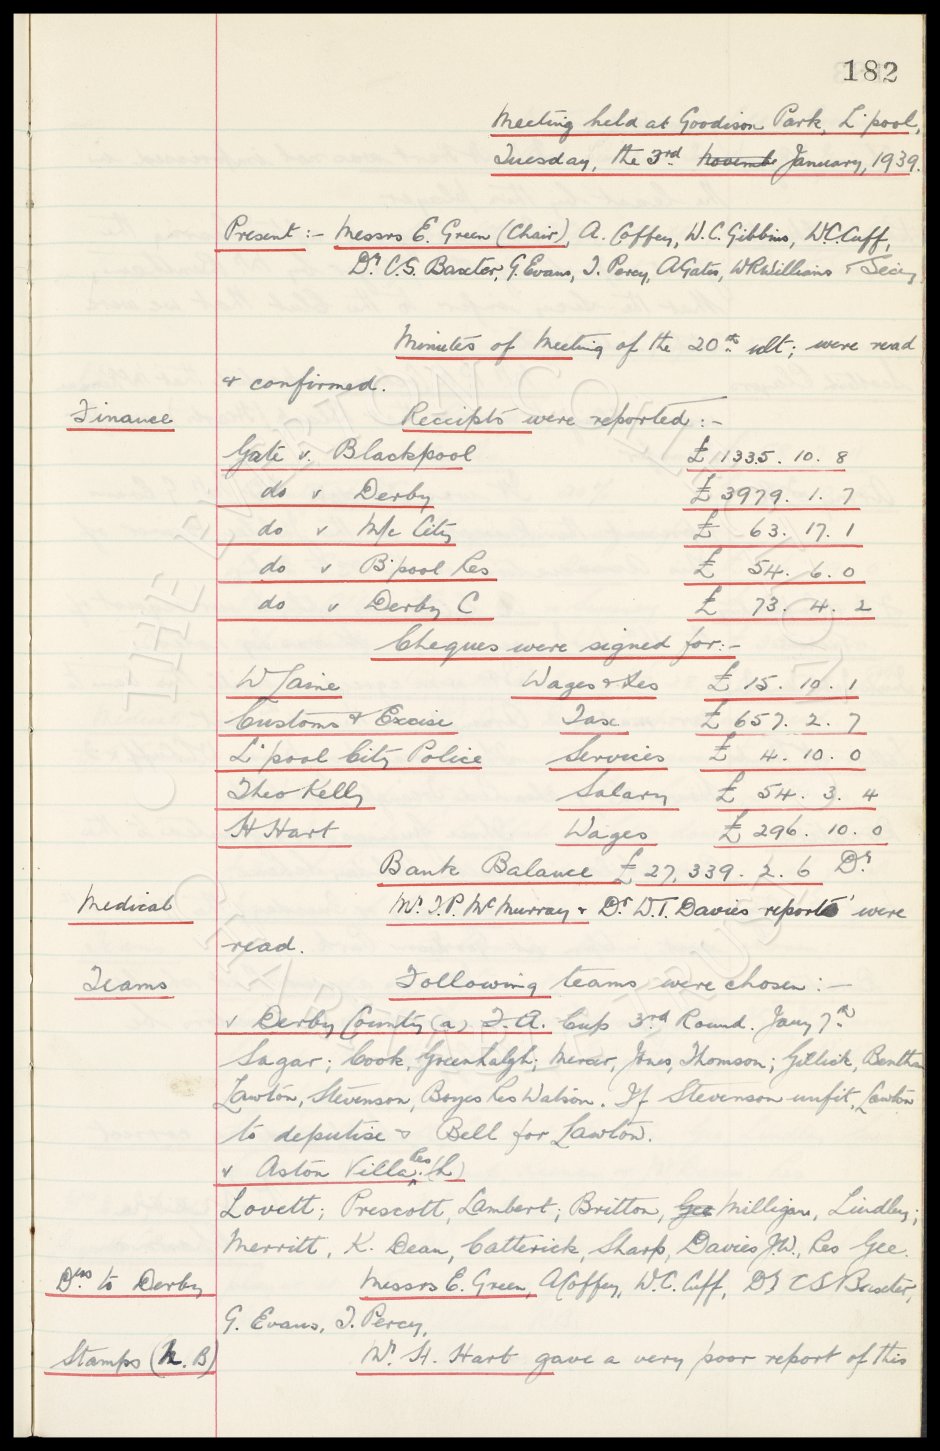 182
Meeting held at Goodison Park, L'pool,
Tuesday, the 3rd Novembe January, 1939.
Present :- Messrs E. Green (Chair), A. Coffey, W.C. Gibbins, W.C. Cuff,
Dr C.S. Baxter, G. Evans, T. Percy, A Gates, W R Williams & Secy.
Minutes of Meeting of the 20th ult; were read
& confirmed.
Finance Receipts were reported :-
Gate v. Blackpool £ 1335. 10. 8
do v Derby £ 3979. 1. 7
do v M/c City £ 63. 17. 1
do v B'pool Res £ 54. 6. 0
do v Derby C £ 73. 4. 2
Cheques were signed for:-
W Wages & Res £ 15. 10. 1
Customs & Excise Tax £ 657. 2. 7
L'pool City Police Services £ 4. 10. 0
Theo Kelly Salary £ 54. 3. 4
H Hart Wages £ 296. 10. 0
Bank Balance £ 27,339. 2. 6 Dr
Medical Mr. J.P. McMurray & Dr W.T. Davies reports were
read.
Teams Following teams were chosen :-
v Derby County (a) F.A. Cup 3rd Round. Jany 7th
Sagar; Cook, Greenhalgh; Mercer, Jones, Thomson; Gillick, Bentham
Lawton, Stevenson, Boyes Res Watson. If Stevenson unfit, Lawton
to deputise & Bell for Lawton.
v Aston Villa Res (h)
Lovett; Prescott, Lambert; Britton, Gee Milligan, Lindley;
Merritt, K. Dean, Catterick, Sharp, Davies J.W., Res Gee.
Drs to Derby Messrs E. Green, A Coffey, W.C. Cuff, Dr C S Baxter,
G. Evans, T. Percy,
Stamps (N.B) Mr. H. Hart gave a very poor report of this
THE EVERTON COLLECTION
CHARITABLE TRUST